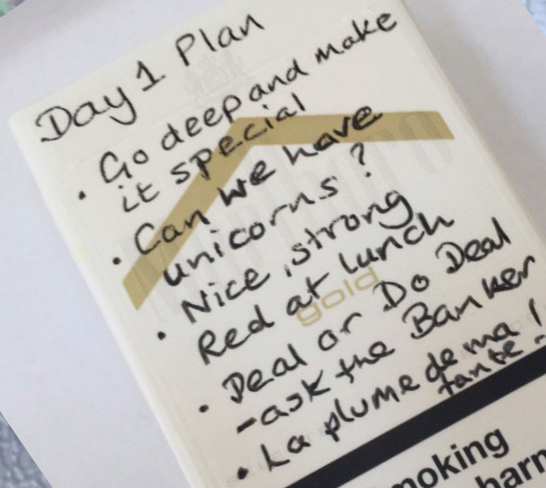 Day 1 Plan
• Go deep and make
it special
• Can we have
unicorns?
• Nice, strong
Red at lunch
gold
• Deal or Do Deal
- ask the Banker
• La plume de ma
tante!
moking
harm